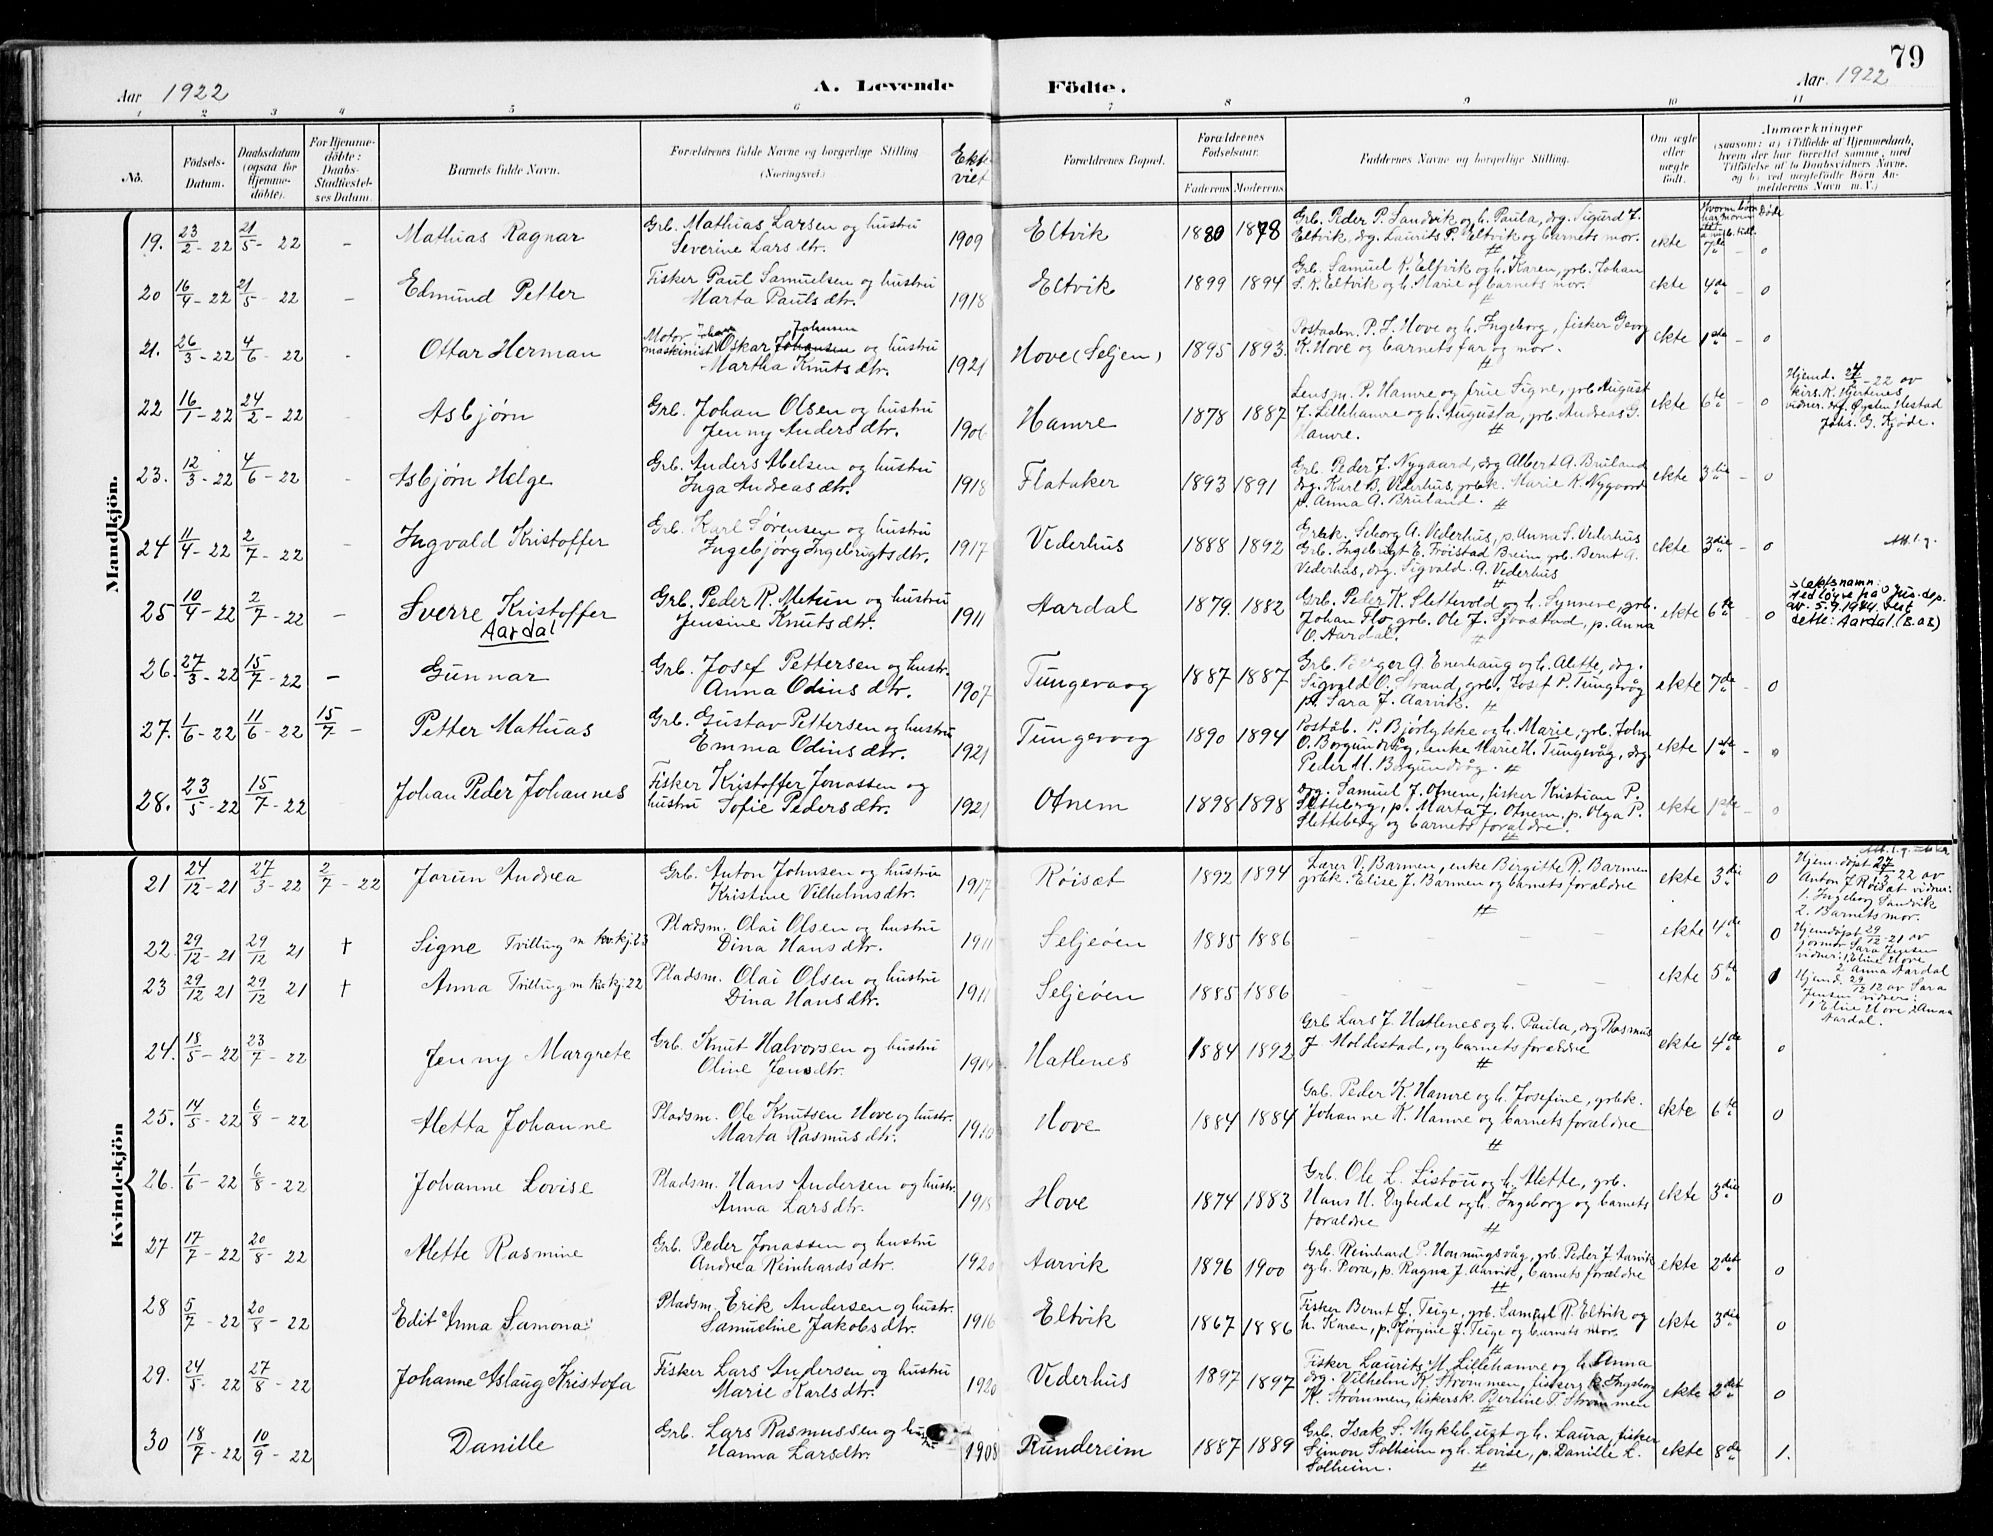 79
Aar 1922 A. Levende Födte. Aar 1922
1 2 3 4 5 6 7 8 9 10 11
No. Födsels-Datum. Daabsdatum (ogsaa for Hjemme-døbte). For Hjemme-döbte: Daabs-Stadfæstel-ses Datum. Barnets fulde Navn. Forældrenes fulde Navne og borgerlige Stilling (Næringsvei.) Ekte-viet Forældrenes Bopæl. Forældrenes Födselsaar. Faderens Moderens Faddernes Navne og borgerlige Stilling. Om ægte eller uægte födt. Anmærkninger
(saasom: a) i Tilfælde af Hjemmedaab,
hvem der har forrettet samme, med
Tilföielse af to Daabsvidners Navne,
og b) ved uægtefödte Börn An-
melderens Navn m. V.)
Mandkjön.
19. 23/2-22 21/5-22 - Mathias Ragnar Grb. Mathias Larsen og hustru
Severine Larsdtr. 1909 Eltvik 1880 1878 Grb. Peder P. Sandvik og h. Paula, drg. Sigurd J.
Eltvik, drg. Laurits P. Eltvik og barnets mor. ekte 7de 0
20 16/4-22 21/5-22 - Edmund Petter Fisker Paul Samuelsen og hustru
Marta Paulsdtr. 1918 Eltvik 1899 1894 Grb. Samuel R. Eltvik og h. Karen, grb. Johan
S. R. Eltvik og h. Marie og barnets mor. ekte 4de - 0
21. 26/3-22 4/6-22 - Ottar Herman Motor- Johan Johnsen
maskinist Oskar Johansen og hustru
Martha Knutsdtr. 1921 Hove (Seljen) 1895 1893. Postaabn. P. J. Hove og h. Ingeborg, fisker Georg
K. Hove og barnets far og mor. ekte 1ste - 0
22 16/1-22 24/2-22 - Asbjørn Grb. Johan Olsen og hustru
Jenny Andersdtr. 1906 Hamre 1878 1887 Lensm. P. Hamre og frue Signe, grb. August
J. Lillehamre og h. Augusta, grb. Andreas G.
Hamre. ekte 6te - 0 Hjemd. 24/2-22 av
kirs. K. Hjertenes
vidner: drg. Øysten Hestad
Johs. G. Kjøde.
23. 12/3-22 4/6-22 - Asbjørn Helge Grb. Anders Abelsen og hustru
Inga Andreasdtr. 1918 Flataker 1893 1891 Grb. Peder J. Nygaard, drg Albert A. Bruland
drg. Karl B. Vederhus, grbk. Marie K. Nygaard
p. Anna A. Bruland. ekte 3die 0
24 11/4-22 2/7-22 - Ingvald Kristoffer Grb. Karl Sørensen og hustru
Ingebjørg Ingebrigtsdtr. 1917 Vederhus 1888 1892 Grbk. Seborg A. Vederhus, p. Anna S. Vederhus
Grb. Ingebrigt E. Frøistad Breim grb. Bernt A.
Vederhus, drg. Sigvald A. Vederhus ekte 3die - 0
25 10/4-22 2/7-22 - Sverre Kristoffer
Aardal Grb. Peder R. Metun og hustru
Jensine Knutsdtr. 1911 Aardal 1879. 1882 Grb. Peder K. Slettevold og h. Synneve, grb.
Johan Flo, grb. Ole J. Sjøastad, p. Anna
O. Aardal. ekte 6te 0 slektsnamn:
ved løyve på Jus.dep.
av 5.9.1944 vert
dette: Aardal. (B.O.B)
26. 27/3-22 15/7-22 - Gunnar Grb. Josef Pettersen og hustr.
Anna Odinsdtr. 1907 Tungevaag 1887 1887 Grb. Berger A. Enerhaug og h. Alette, drg.
Sigvald O. Strand, grb. Josef P. Tungevåg
p. Sara J. Aarvik. ekte 7de - 0
27. 1/6-22 11/6-22 15/7 - Petter Mathias Grb. Gustav Pettersen og hustru
Emma Odinsdtr. 1921 Tungevaag 1890 1894 Poståb. P. Bjørlykke og h. Marie, grb. John
O. Borgundvåg, enke Marie H. Tungevåg, drg
Peder M. Borgundvåg. ekte 1ste - 0
28. 23/5-22 15/7-22 Johan Peder Johannes Fisker Kristoffer Jonassen og
hustru Sofie Pedersdtr. 1921 Otnem 1898 1898 drg. Samuel J. Otnem, fisker Kristian P.
Sletteberg, p. Marta J. Otnem, p. Olga P.
Sletteberg og barnets forældre. ekte 1ste - 0
Kvindekjön
21 24/12-21 27/3-22 2/7-22 Jorun Andrea Grb. Anton Johnsen og hustru
Kristine Vilhelmsdtr. 1917 Røisæt 1892 1894 Lærer V. Barmen, enke Birgitte R. Barmen
grbk. Elise J. Barmen og barnets forældre ekte 3die 0 Hjemdøpt 27/3 22 av
Anton J Røisæt vidner:
1. Ingeborg Sandvik
2. Barnets mor.
22. 29/12-21 29/12 21 + Signe Tvilling m kv.kj. 23 Pladsm. Olai Olsen og hustru
Dina Hansdtr. 1911 Seljeøen 1885 1886 - - - ekte 4de 0 Hjemdøpt 29/12-21 av
jormor Sara Jensen
vidner: 1. Eline Hove
2 Anna Aardal
23 29/12 21 29/12 21 + Anna Tvilling m kv.kj. 22 Pladsm. Olai Olsen og hustru
Dina Hansdtr. 1911 Seljeøen 1885 1886 - - - ekte 5te Hjemd. 29/12 12 av Sara
Jensen vidner:
1 Eline Hove 2 Anna
Aardal.
24. 18/5-22 23/7-22 Jenny Margrete Grb. Knut Halvorsen og hustru
Oline Jensdtr. 1914 Hatlenes 1884 1892 Grb Lars J. Hatlenes og h. Paula, drg Rasmus
J Moldestad, og barnets forældre ekte 4de 0
25. 14/5-22 6/8-22 Metta Johanne Pladsm. Ole Knutsen Hove og hustr.
Marta Rasmusdtr. 1910 Hove 1884 1884 Grb. Peder K. Hamre og h. Josefine, grbk.
Johanne K. Hamre og barnets forældre ekte 6te 0
26. 1/6-22 6/8-22 Johanne Lovise Pladsm. Hans Andersen og hustr.
Anna Larsdtr. 1918 Hove 1874 1883 Grb. Ole L. Listøu og h. Mette, grb.
Hans H. Dybedal og h. Ingeborg og barnets
forældre ekte 3die 0
27 17/7-22 20/8-22 Mette Rasmine Grb. Peder Jonassen og hustru
Andrea Reinhardsdtr. 1920 Aarvik 1896 1900 Grb. Reinhard P. Honningsvåg, grb. Peder J. Aarvik
og h. Pora, p. Ragna J. Aarvik, barnets forældre ekte 2det 0
28 5/7-22 20/8-22 Edit Anna Samona Pladsm. Erik Andersen og hustr.
Samueline Jakobsdtr. 1916 Eltvik 1867 1886 Fisker Bernt J. Teige, grb. Samuel R. Eltvik og
h. Karen, p. Jørgine J. Teige og barnets mor. ekte 3die 0
29. 24/5-22 27/8-22 Johanne Aslaug Kristofa Fisker Lars Andersen og hustru
Marie Karlsdtr. 1920 Vederhus 1897 1897 Fisker Laurits M. Lillehamre og h. Anna
drg. Vilhelm K. Strømmen, fiskerk. Ingeborg
H. Strømmen, fiskersk. Bertine T. Strømmen ekte 2det 0
30 18/7-22 10/9-22 Danille Grb. Lars Rasmussen og
Hanna Larsdtr. 1908 Rundereim 1887 1889 Grb. Isak S. Myklebust og h. Laura, fisker
Simon Solheim og h. Lovise, p. Danille L.
Solheim. ekte 8de 1.